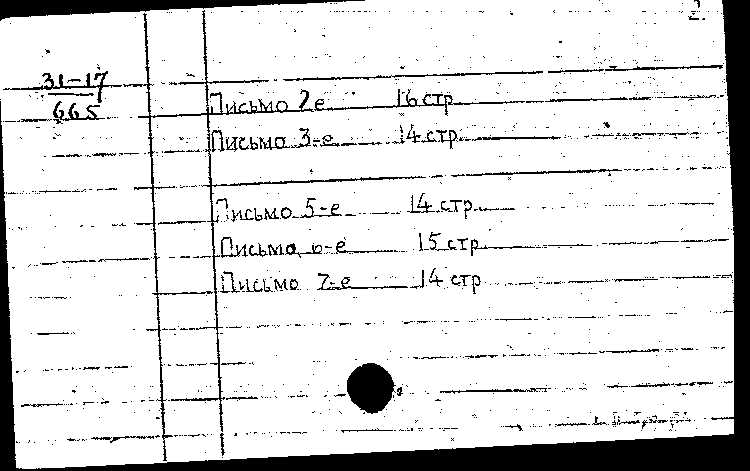 2.
31-17
665
Письмо 2е 16 стр
Письмо 3-е 14 стр
Письмо 5-е 14 стр.
Письмо 6-е 15 стр
Письмо 7-е 14 стр